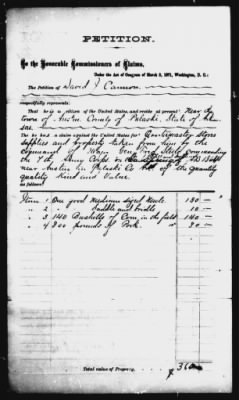 PETITION.
To the Honorable Commissioners of Claims,
Under the Act of Congress of March 3, 1871, Washington, D. C.:
The Petition of David J Cannon
respectfully represents:
That he is a citizen of the United States, and resides at present near the
town of Austin County of Pulaski, State of
That he has a claim against the United States for Quartermaster Stores
Supplies and property taken from him by the
command of Genl Steele Commanding
the 7th Army Corps
near Austin in Pulaski Co of the quantity
quality kind and Value
as follows:
Item 1 One good Medium sized Mule 150 —
" 2 " Saddle and bridle 10 —
" 3 140 Bushells of Corn in the field 140 —
" 4 300 pounds of Pork " 30 —
Total value of Property,